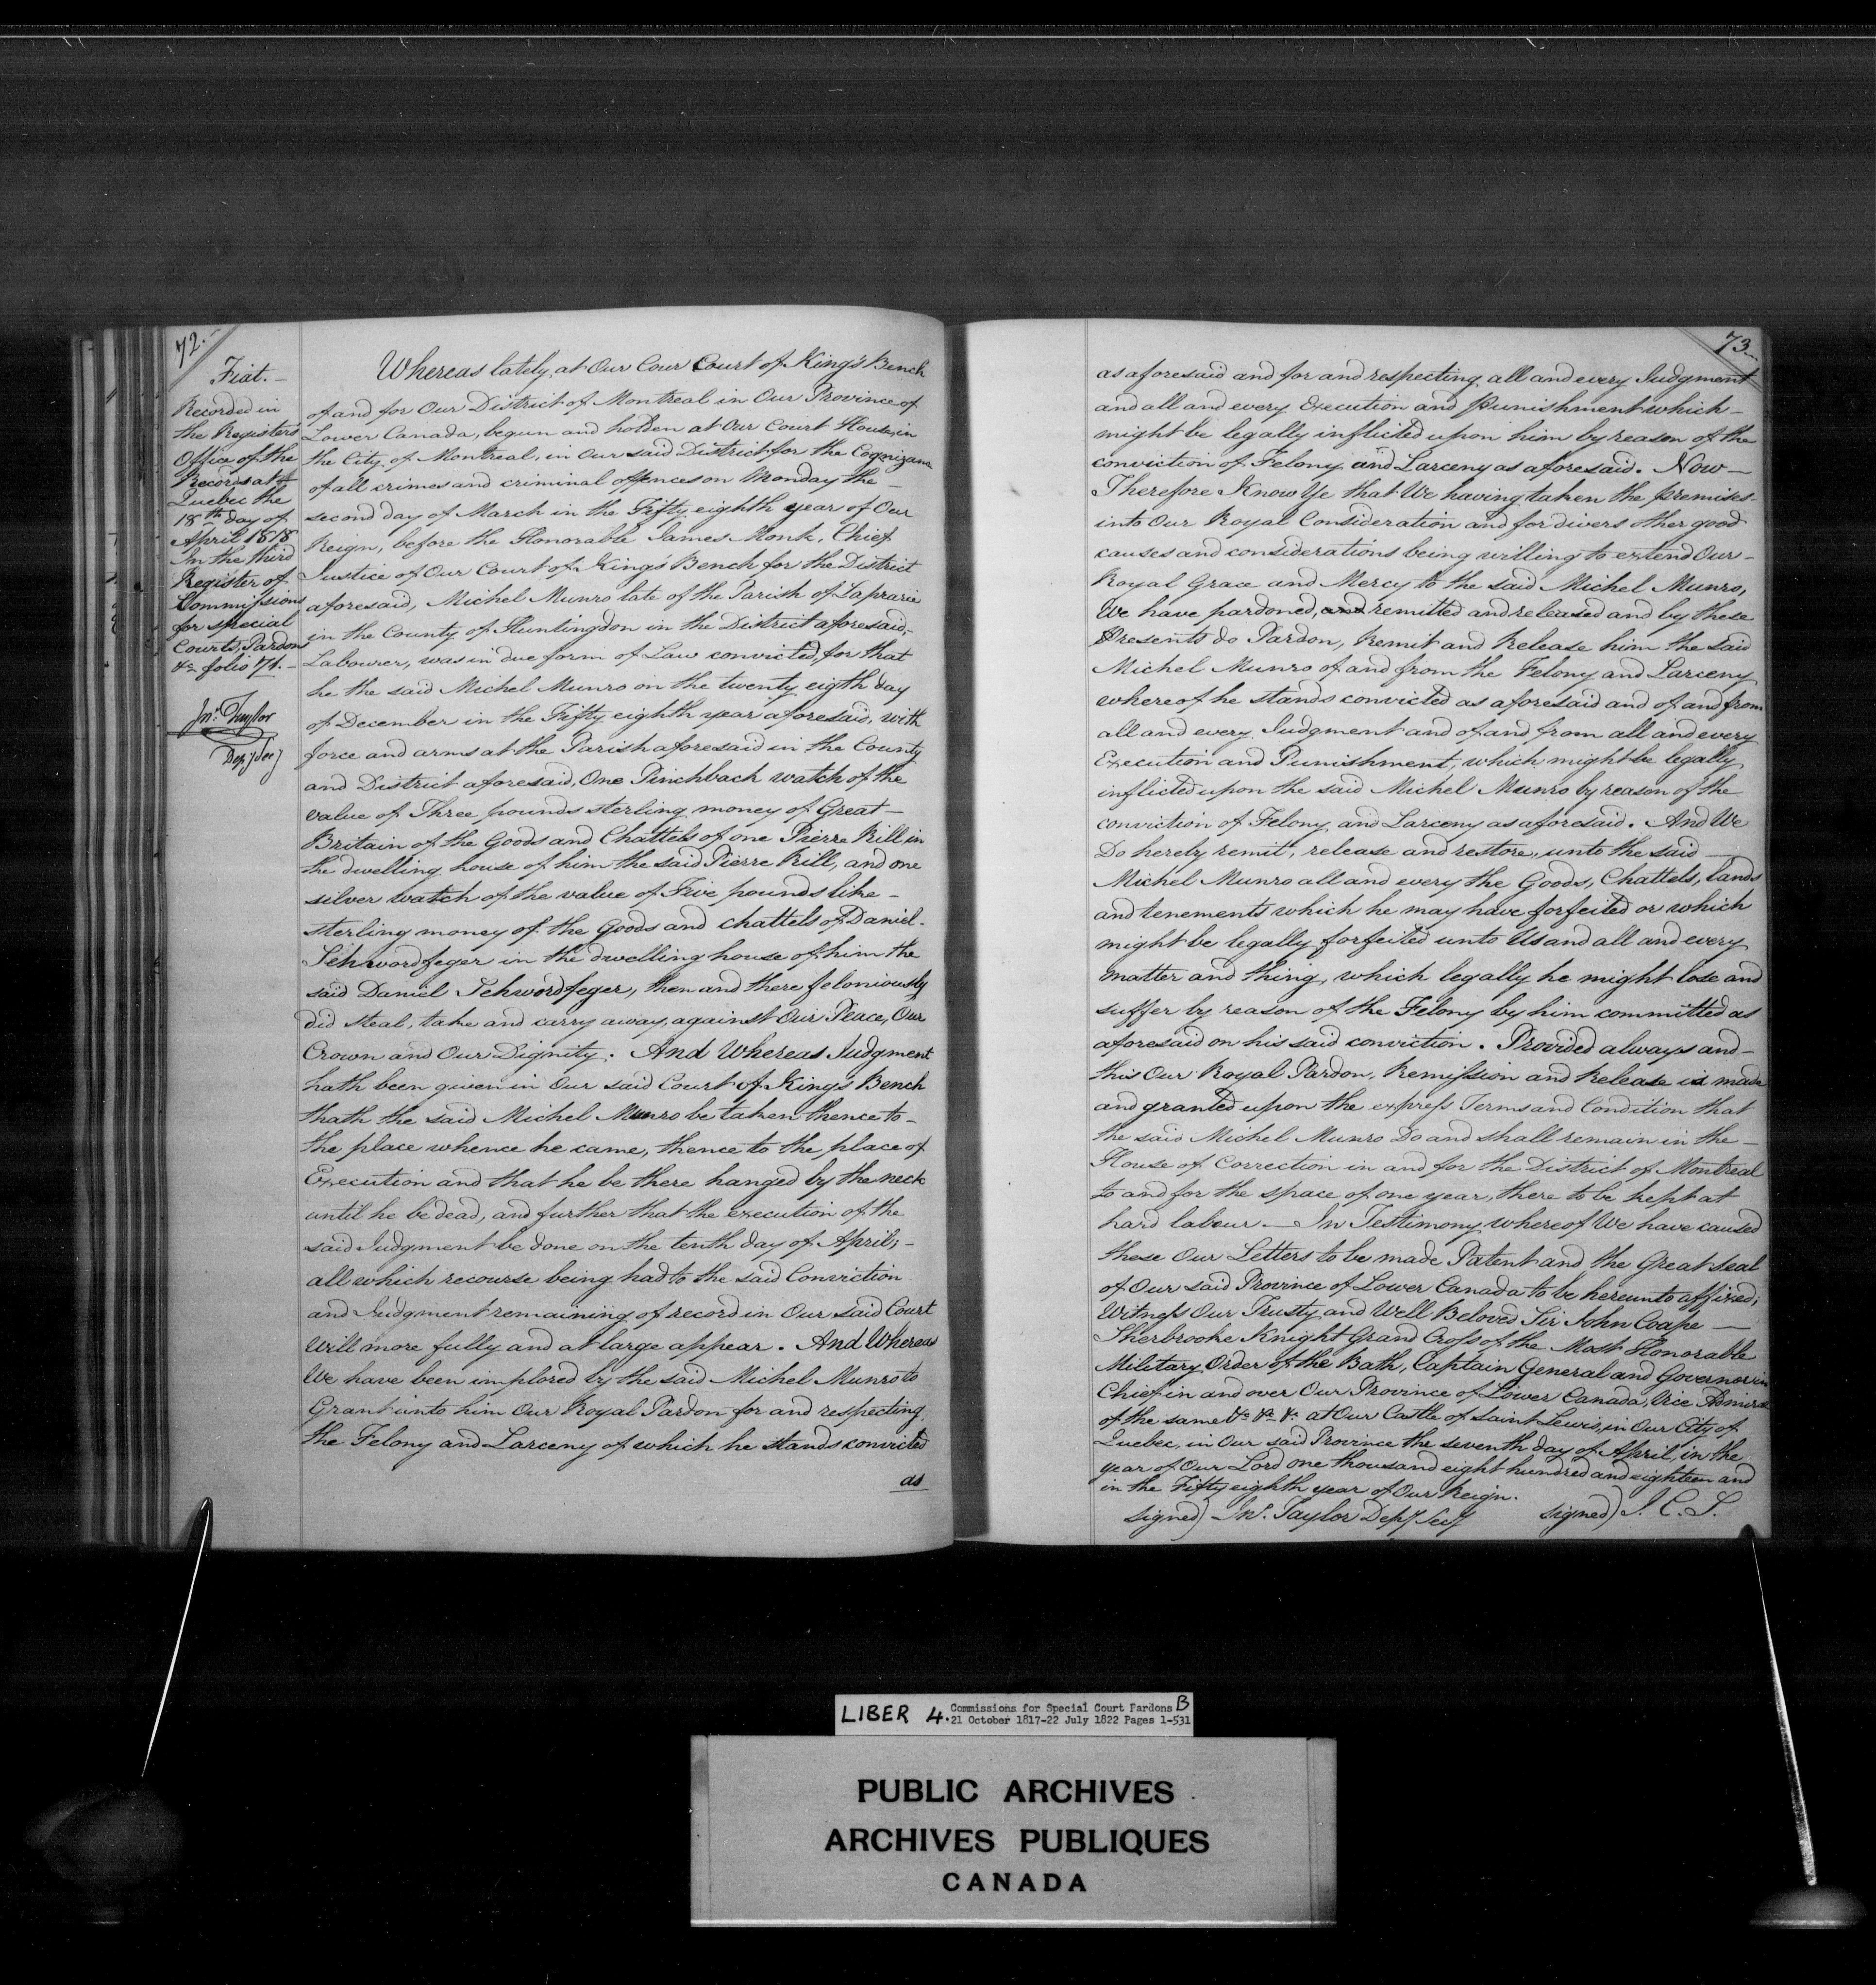 72.
Fiat.—
Recorded in
the Registers
Office of the
Records at
Quebec the
18th day of
April 1818
In the third
Register of
Commissions
for special
Courts, Pardon
&c folio 71.—
Jno. Taylor
Depy Secy
Whereas lately, at Our Cour Court of King's Bench
of and for Our District of Montreal in Our Province of
Lower Canada, begun and holden at Our Court House, in
the City of Montreal, in Our said District for the Cognizance
of all crimes and criminal offences on Monday the—
second day of March in the Fifty eighth year of Our
Reign, before the Honorable James Monk, Chief
Justice of Our Court of King's Bench for the District
aforesaid, Michel Munro late of the Parish of Laprarie
in the County of Huntingdon in the District aforesaid,—
Labourer, was in due form of Law convicted, for that
he the said Michel Munro on the twenty eigth day
of December in the Fifty eighth year aforesaid, with
force and arms at the Parish aforesaid in the County
and District aforesaid, One Pinchback watch of the
value of Three pounds sterling money of Great—
Britain of the Goods and Chattels of one Pierre Rill in
the dwelling house of him the said Pierre Rill, and one
silver watch of the value of Five pounds like—
sterling money of the Goods and chattels of Daniel
Schwordfeger in the dwelling house of him the
said Daniel Schwordfeger, then and there feloniously
did steal, take and carry away, against Our Peace, Our
Crown and Our Dignity. And Whereas Judgment
hath been given in Our said Court of King's Bench
thath the said Michel Munro be taken thence to—
the place whence he came, thence to the place of
Execution and that he be there hanged by the neck
until he be dead, and further that the execution of the
said Judgment be done on the tenth day of April;—
all which recourse being had to the said Conviction
and Judgment remaining of record in Our said Court
will more fully and at large appear. And Whereas
We have been implored by the said Michel Munro to
Grant unto him Our Royal Pardon for and respecting
the Felony and Larceny of which he stands convicted
as
73
as aforesaid and for and respecting all and every Judgment
and all and every Execution and Punishment which—
might be legally inflicted upon him by reason of the
conviction of Felony and Larceny as aforesaid. Now—
Therefore Know Ye that We having taken the premises
into Our Royal Consideration and for divers other good
causes and considerations being willing to extend Our—
Royal Grace and Mercy to the said Michel Munro,
We have pardoned, and remitted and released and by these
Presents do Pardon, Remit and Release him the said
Michel Munro of and from the Felony and Larceny
whereof he stands convicted as aforesaid and of and from
all and every Judgment and of and from all and every
Execution and Punishment, which might be legally
inflicted upon the said Michel Munro by reason of the
conviction of Felony and Larceny as aforesaid. And We
Do hereby remit, release and restore, unto the said—
Michel Munro all and every the Goods, Chattels, lands
and tenements which he may have forfeited or which
might be legally forfeited unto Us and all and every
matter and thing, which legally he might lose and
suffer by reason of the Felony by him committed as
aforesaid on his said conviction. Provided always and—
this Our Royal Pardon, Remission and Release is made
and granted upon the express Terms and Condition that
the said Michel Munro Do and shall remain in the—
House of Correction in and for the District of Montreal
to and for the space of one year, there to be kept at
hard labour.—In Testimony whereof We have caused
these Our Letters to be made Patent and the Great Seal
of Our said Province of Lower Canada to be hereunto affixed;
Witness Our Trusty and Well Beloved Sir John Coape—
Sherbrooke Knight Grand Cross of the Most Honorable
Military Order of the Bath, Captain General and Governor in
Chief in and over Our Province of Lower Canada, Vice Admiral
of the same &c &c &c at Our Castle of Saint Lewis, in Our City of
Quebec, in Our said Province the seventh day of April, in the
year of Our Lord one thousand eight hundred and eighteen and
in the Fifty eighth year of Our Reign.
signed) Jno. Taylor Depy Secy signed) J. C. S.
LIBER 4. Commissions for Special Court Pardons B
21 October 1817-22 July 1822 Pages 1-531
PUBLIC ARCHIVES
ARCHIVES PUBLIQUES
CANADA